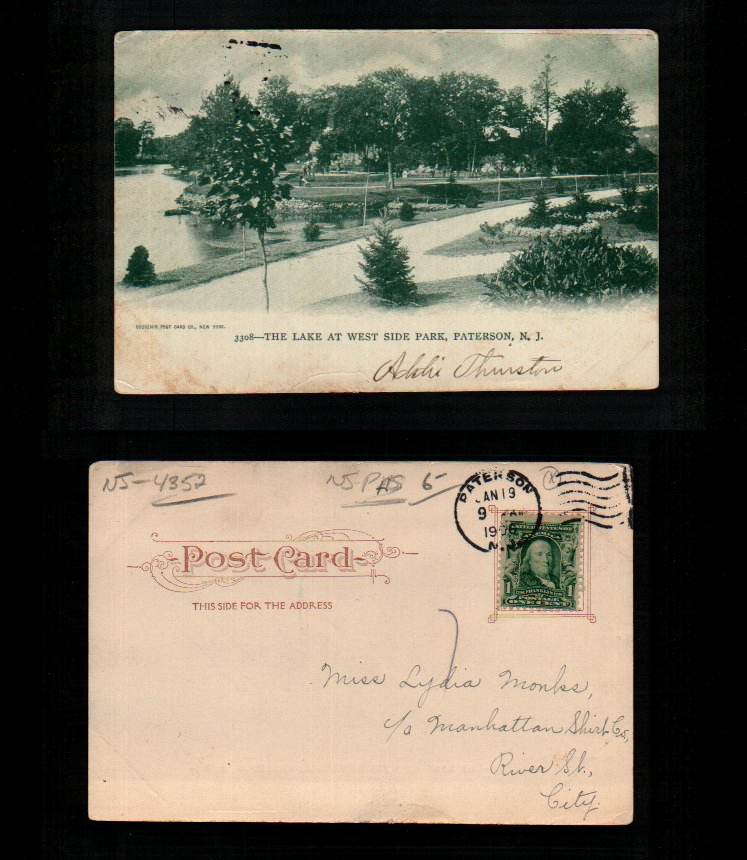 SOUVENIR POST CARD CO., NEW YORK.
3308—THE LAKE AT WEST SIDE PARK, PATERSON, N. J.
Addie Thurston
NJ-4352
NJ-PAS 6-
PATERSON
JAN 19
9
N.J.
Post Card
THIS SIDE FOR THE ADDRESS
UNITED STATES OF AMERICA
1 FRANKLIN 1
POSTAGE
ONE CENT
Miss Lydia Monks,
c/o Manhattan Shirt Co,
River St.,
City.